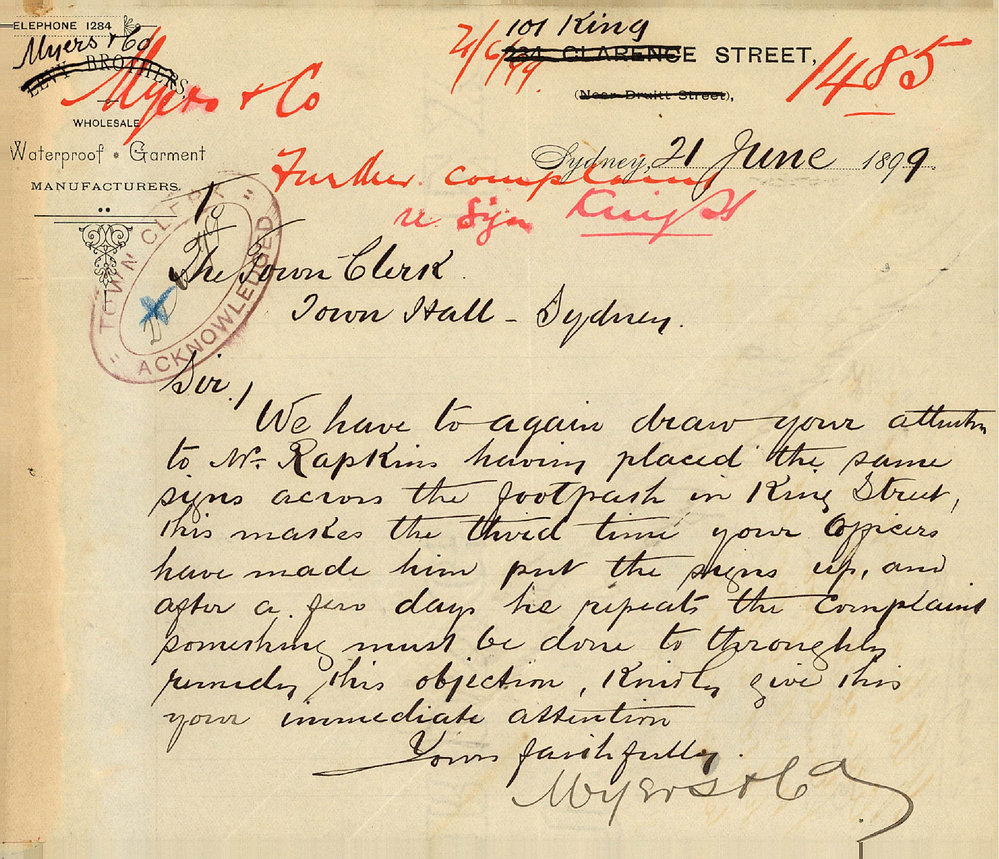 ELEPHONE 1284
Myers & Co
LEVY BROTHERS,
Myers & Co
WHOLESALE
Waterproof Garment
MANUFACTURERS.
21/6/99
101 King
234 CLARENCE STREET,
(Near Druitt Street),
1485
Sydney, 21 June 1899.
Further complaint
re Sign King St
TOWN CLERK
ACKNOWLEDGED
The Town Clerk
Town Hall - Sydney.
Sir,
We have to again draw your attention
to Mr. Rapkins having placed the same
signs across the footpath in King Street,
this makes the third time your Officers
have made him put the signs up, and
after a few days he repeats the Complaint
something must be done to throughly
remedy this objection, Kindly give this
your immediate attention
Yours faithfully.
Myers & Co